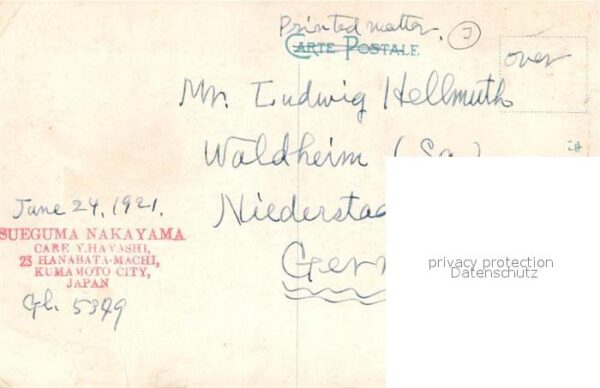 Printed matter. J
CARTE POSTALE
over
Mr. Ludwig Hellmuth
Waldheim (Sa.)
Niederstad
Germ
June 24, 1921.
SUEGUMA NAKAYAMA
CARE Y.HAYASHI,
25 HANABATA-MACHI,
KUMAMOTO CITY,
JAPAN
Gl. 5399
privacy protection
Datenschutz